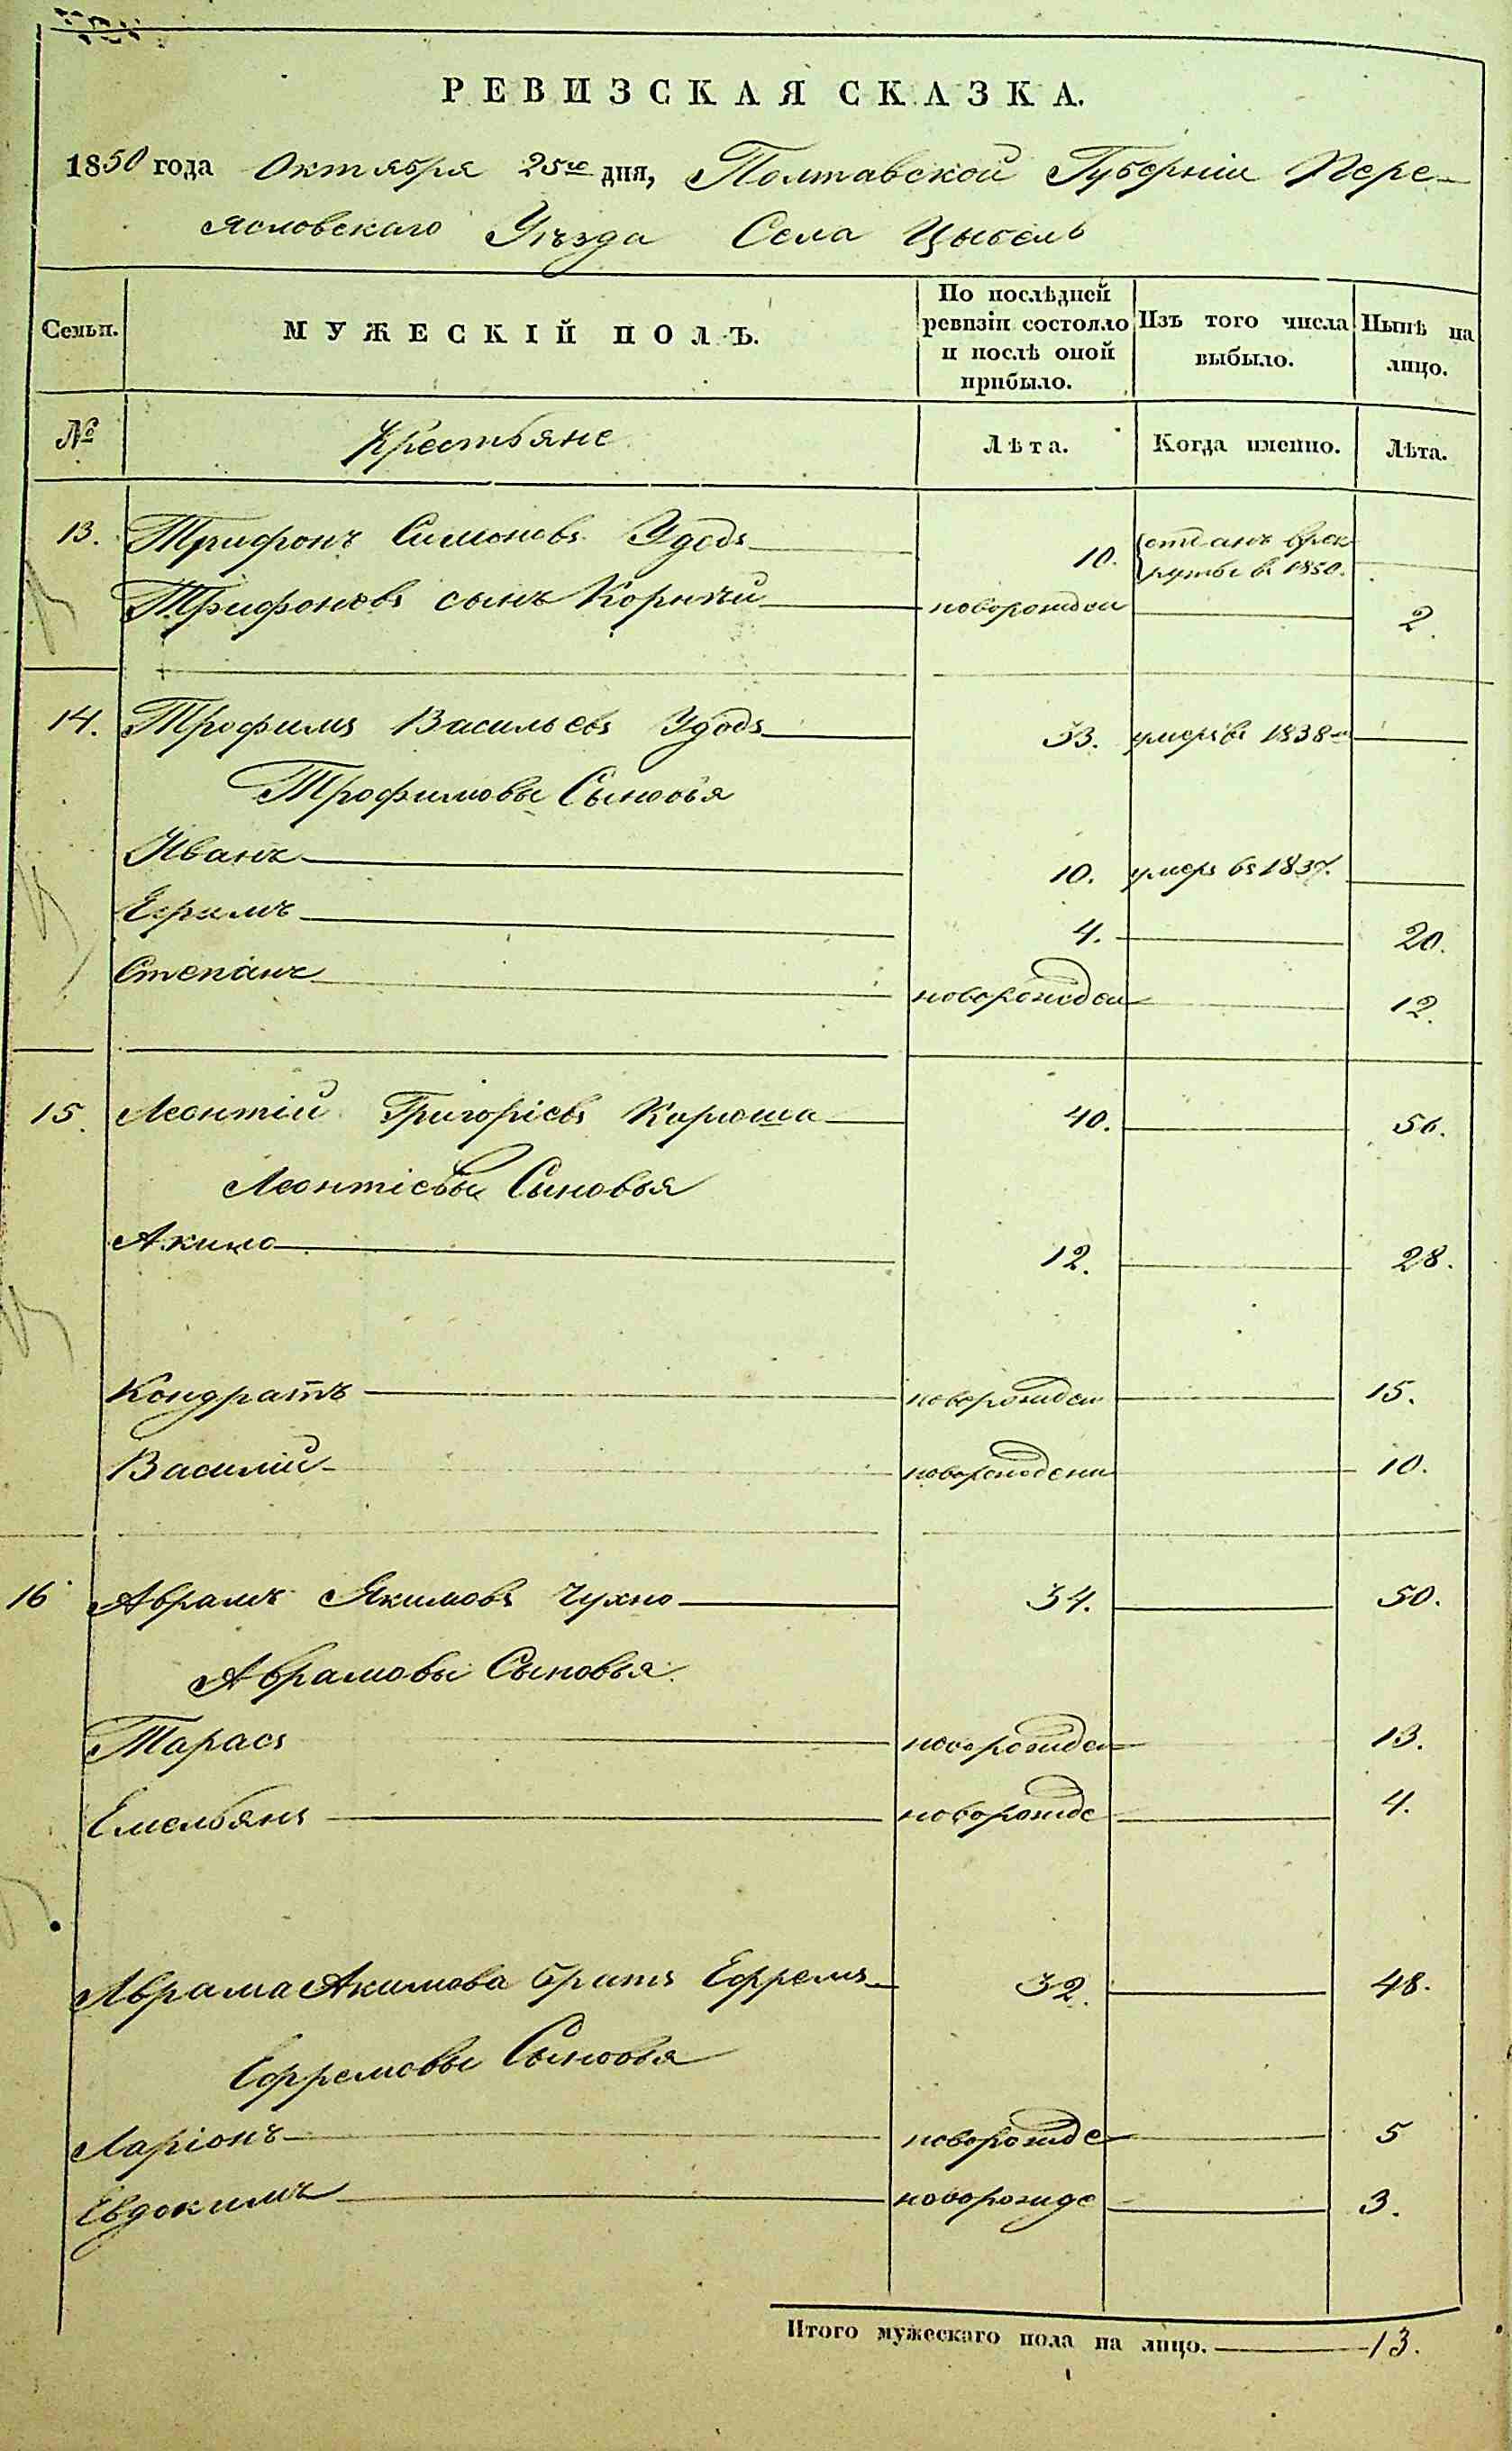 РЕВИЗСКАЯ СКАЗКА.
1850 года Октября 25го дня, Полтавской Губерніи Пере-
ясловскаго Уѣзда Села Цыбель
Семьи. МУЖЕСКІЙ ПОЛЪ. По послѣдней ревизіи состояло и послѣ оной прибыло. Изъ того числа выбыло. Нынѣ на лицо.
№ Крестьяне Лѣта. Когда именно. Лѣта.
13. Трифонъ Симоновъ Удодъ 10. отданъ врек
рутъі въ 1850.
Трифоновъ сынъ Корнѣй новорожден 2.
14. Трофимъ Васильевъ Удодъ 33. умеръ въ 1838го
Трофимовы Сыновья
Иванъ 10. умеръ въ 1837.
Ефимъ 4. 20.
Степанъ новорожден 12.
15. Леонтій Григорієвъ Карюша 40. 56.
Леонтієвы Сыновья
Акимъ 12. 28.
Кондратъ новорожден 15.
Василій новорожденн 10.
16 Аврамъ Якимовъ Чухно 34. 50.
Аврамовы Сыновья.
Тарасъ новорожден 13.
Емельянъ новорожде 4.
Аврама Акимова братъ Ефремъ 32. 48.
Ефремовы Сыновья
Ларіонъ новорожде 5
Евдокимъ новорожде 3.
Итого мужескаго пола на лицо. 13.